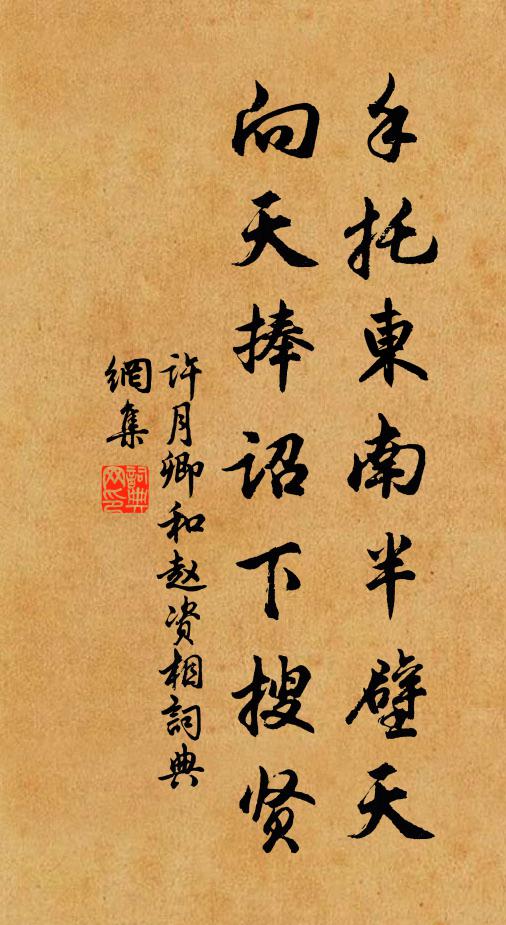 手托東南半壁天
向天捧詔下搜贤
许月卿和赵资相詞典
網集
詞典网印